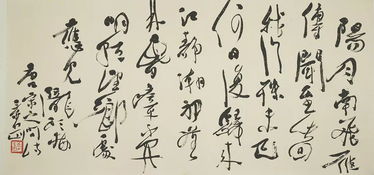 陽月南飛雁
傳聞至此回
我行殊未已
何日復歸來
江靜潮初落
林昏瘴不開
明朝望鄉處
應見
隴頭梅
唐宋之問詩